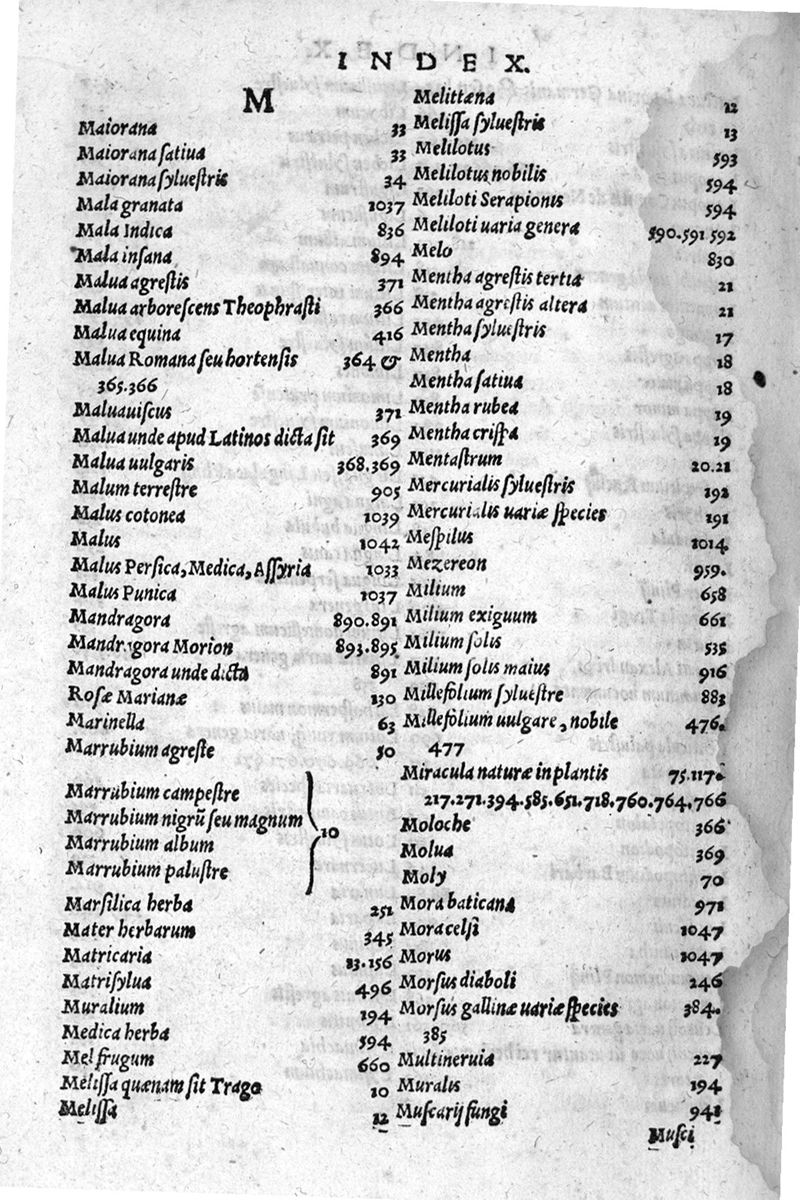 INDEX.
M
Maiorana 33
Maiorana ſatiua 33
Maiorana ſylueſtris 34
Mala granata 1037
Mala Indica 836
Mala inſana 894
Malua agreſtis 371
Malua arboreſcens Theophraſti 366
Malua equina 416
Malua Romana ſeu hortenſis 364 &
365.366
Maluauiſcus 371
Malua unde apud Latinos dicta ſit 369
Malua uulgaris 368.369
Malum terreſtre 905
Malus cotonea 1039
Malus 1042
Malus Perſica, Medica, Aſſyria 1033
Malus Punica 1037
Mandragora 890.891
Mandragora Morion 893.895
Mandragora unde dicta 891
Roſæ Marianæ 130
Marinella 63
Marrubium agreſte 50
Marrubium campeſtre
Marrubium nigrũ ſeu magnum
Marrubium album
Marrubium paluſtre
10
Marſilica herba 251
Mater herbarum 345
Matricaria 13.156
Matriſylua 496
Muralium 194
Medica herba 594
Mel frugum 660
Meliſſa quænam ſit Trago 10
Meliſſa 12
Melittæna 12
Meliſſa ſylueſtris 13
Melilotus 593
Melilotus nobilis 594
Meliloti Serapionis 594
Meliloti uaria genera 590.591 592
Melo 830
Mentha agreſtis tertia 21
Mentha agreſtis altera 21
Mentha ſylueſtris 17
Mentha 18
Mentha ſatiua 18
Mentha rubea 19
Mentha criſpa 19
Mentaſtrum 20.21
Mercurialis ſylueſtris 192
Mercurialis uariæ ſpecies 191
Meſpilus 1014
Mezereon 959.
Milium 658
Milium exiguum 661
Milium ſolis 535
Milium ſolis maius 916
Millefolium ſylueſtre 883
Millefolium uulgare, nobile 476.
477
Miracula naturæ in plantis 75.117.
217.271.394.585.651.718.760.764.766
Moloche 366
Molua 369
Moly 70
Mora baticana 971
Mora celſi 1047
Morus 1047
Morſus diaboli 246
Morſus gallinæ uariæ ſpecies 384.
385
Multineruia 227
Muralis 194
Muſcarij fungi 941
Muſci